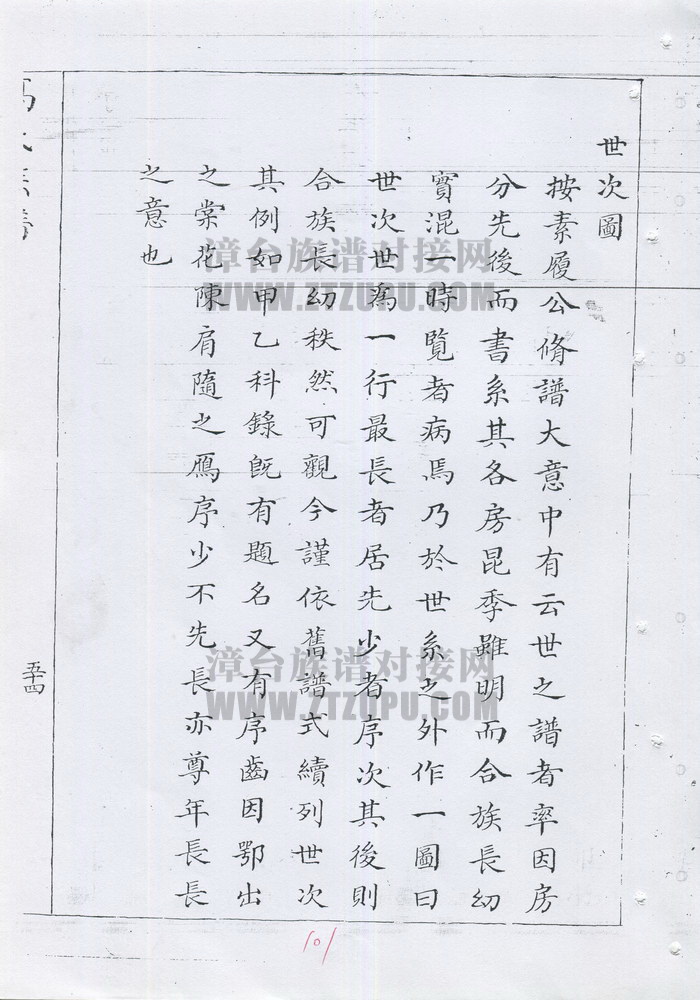 世次圖
按素履公脩譜大意中有云世之譜者率因房
分先後而書系其各房昆季雖明而合族長幼
實混一時覽者病焉乃於世系之外作一圖曰
世次世為一行最長者居先少者序次其後則
合族長幼秩然可觀今謹依舊譜式續列世次
其例如甲乙科錄既有題名又有序齒因鄂出
之棠花陳肩隨之鴈序少不先長亦尊年長長
之意也
五十四
101
漳台族谱对接网
WWW.ZTZUPU.COM
漳台族谱对接网
WWW.ZTZUPU.COM